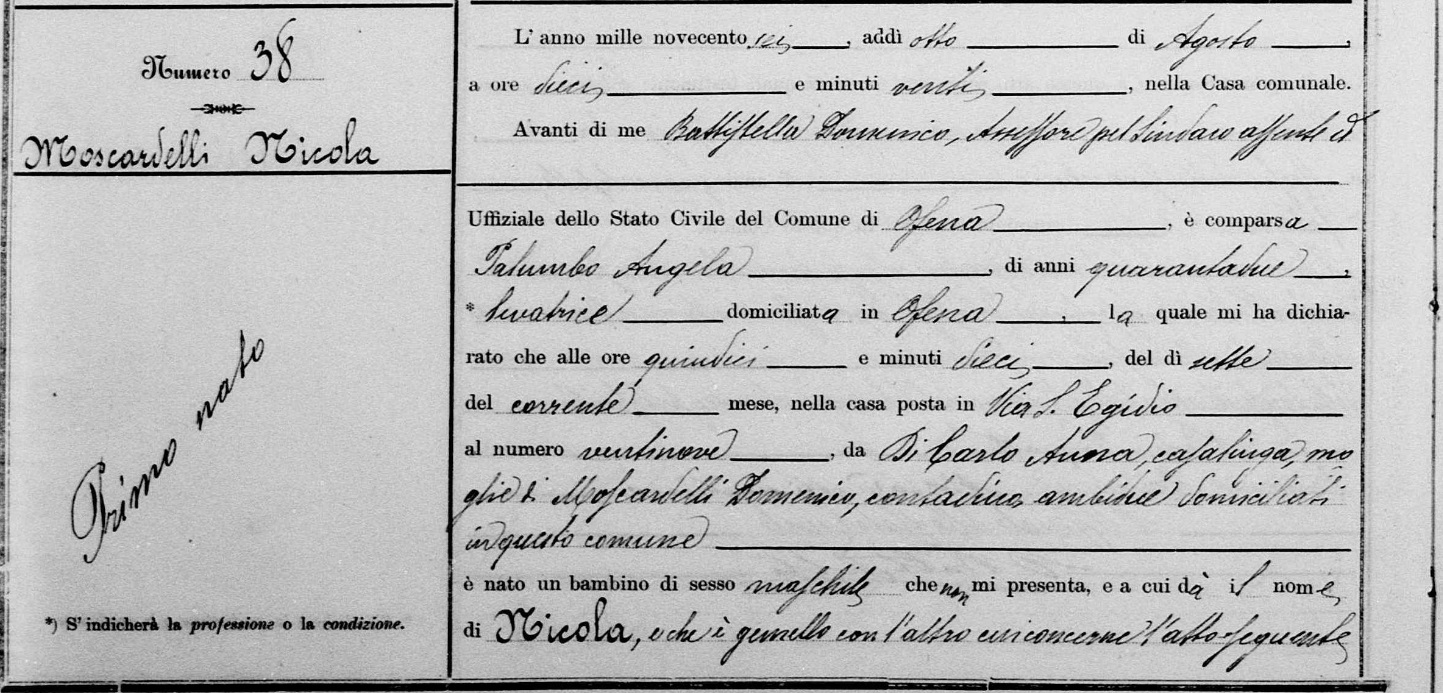 Numero 38
Moscardelli Nicola
Primo nato
*) S' indicherà la professione o la condizione.
L' anno mille novecento sei, addì otto di Agosto,
a ore dieci e minuti venti, nella Casa comunale.
Avanti di me Battistella Domenico, Assessore pel Sindaco assente ed
Uffiziale dello Stato Civile del Comune di Ofena, è comparsa
Palumbo Angela, di anni quarantadue,
* levatrice domiciliata in Ofena, la quale mi ha dichia-
rato che alle ore quindici e minuti dieci, del dì sette
del corrente mese, nella casa posta in Via S. Egidio
al numero ventinove, da Di Carlo Anna, casalinga, mo
glie di Moscardelli Domenico, contadino, ambidue domiciliati
in questo comune
è nato un bambino di sesso maschile che non mi presenta, e a cui dà il nome
di Nicola, e che è gemello con l'altro cui concerne l'atto seguente